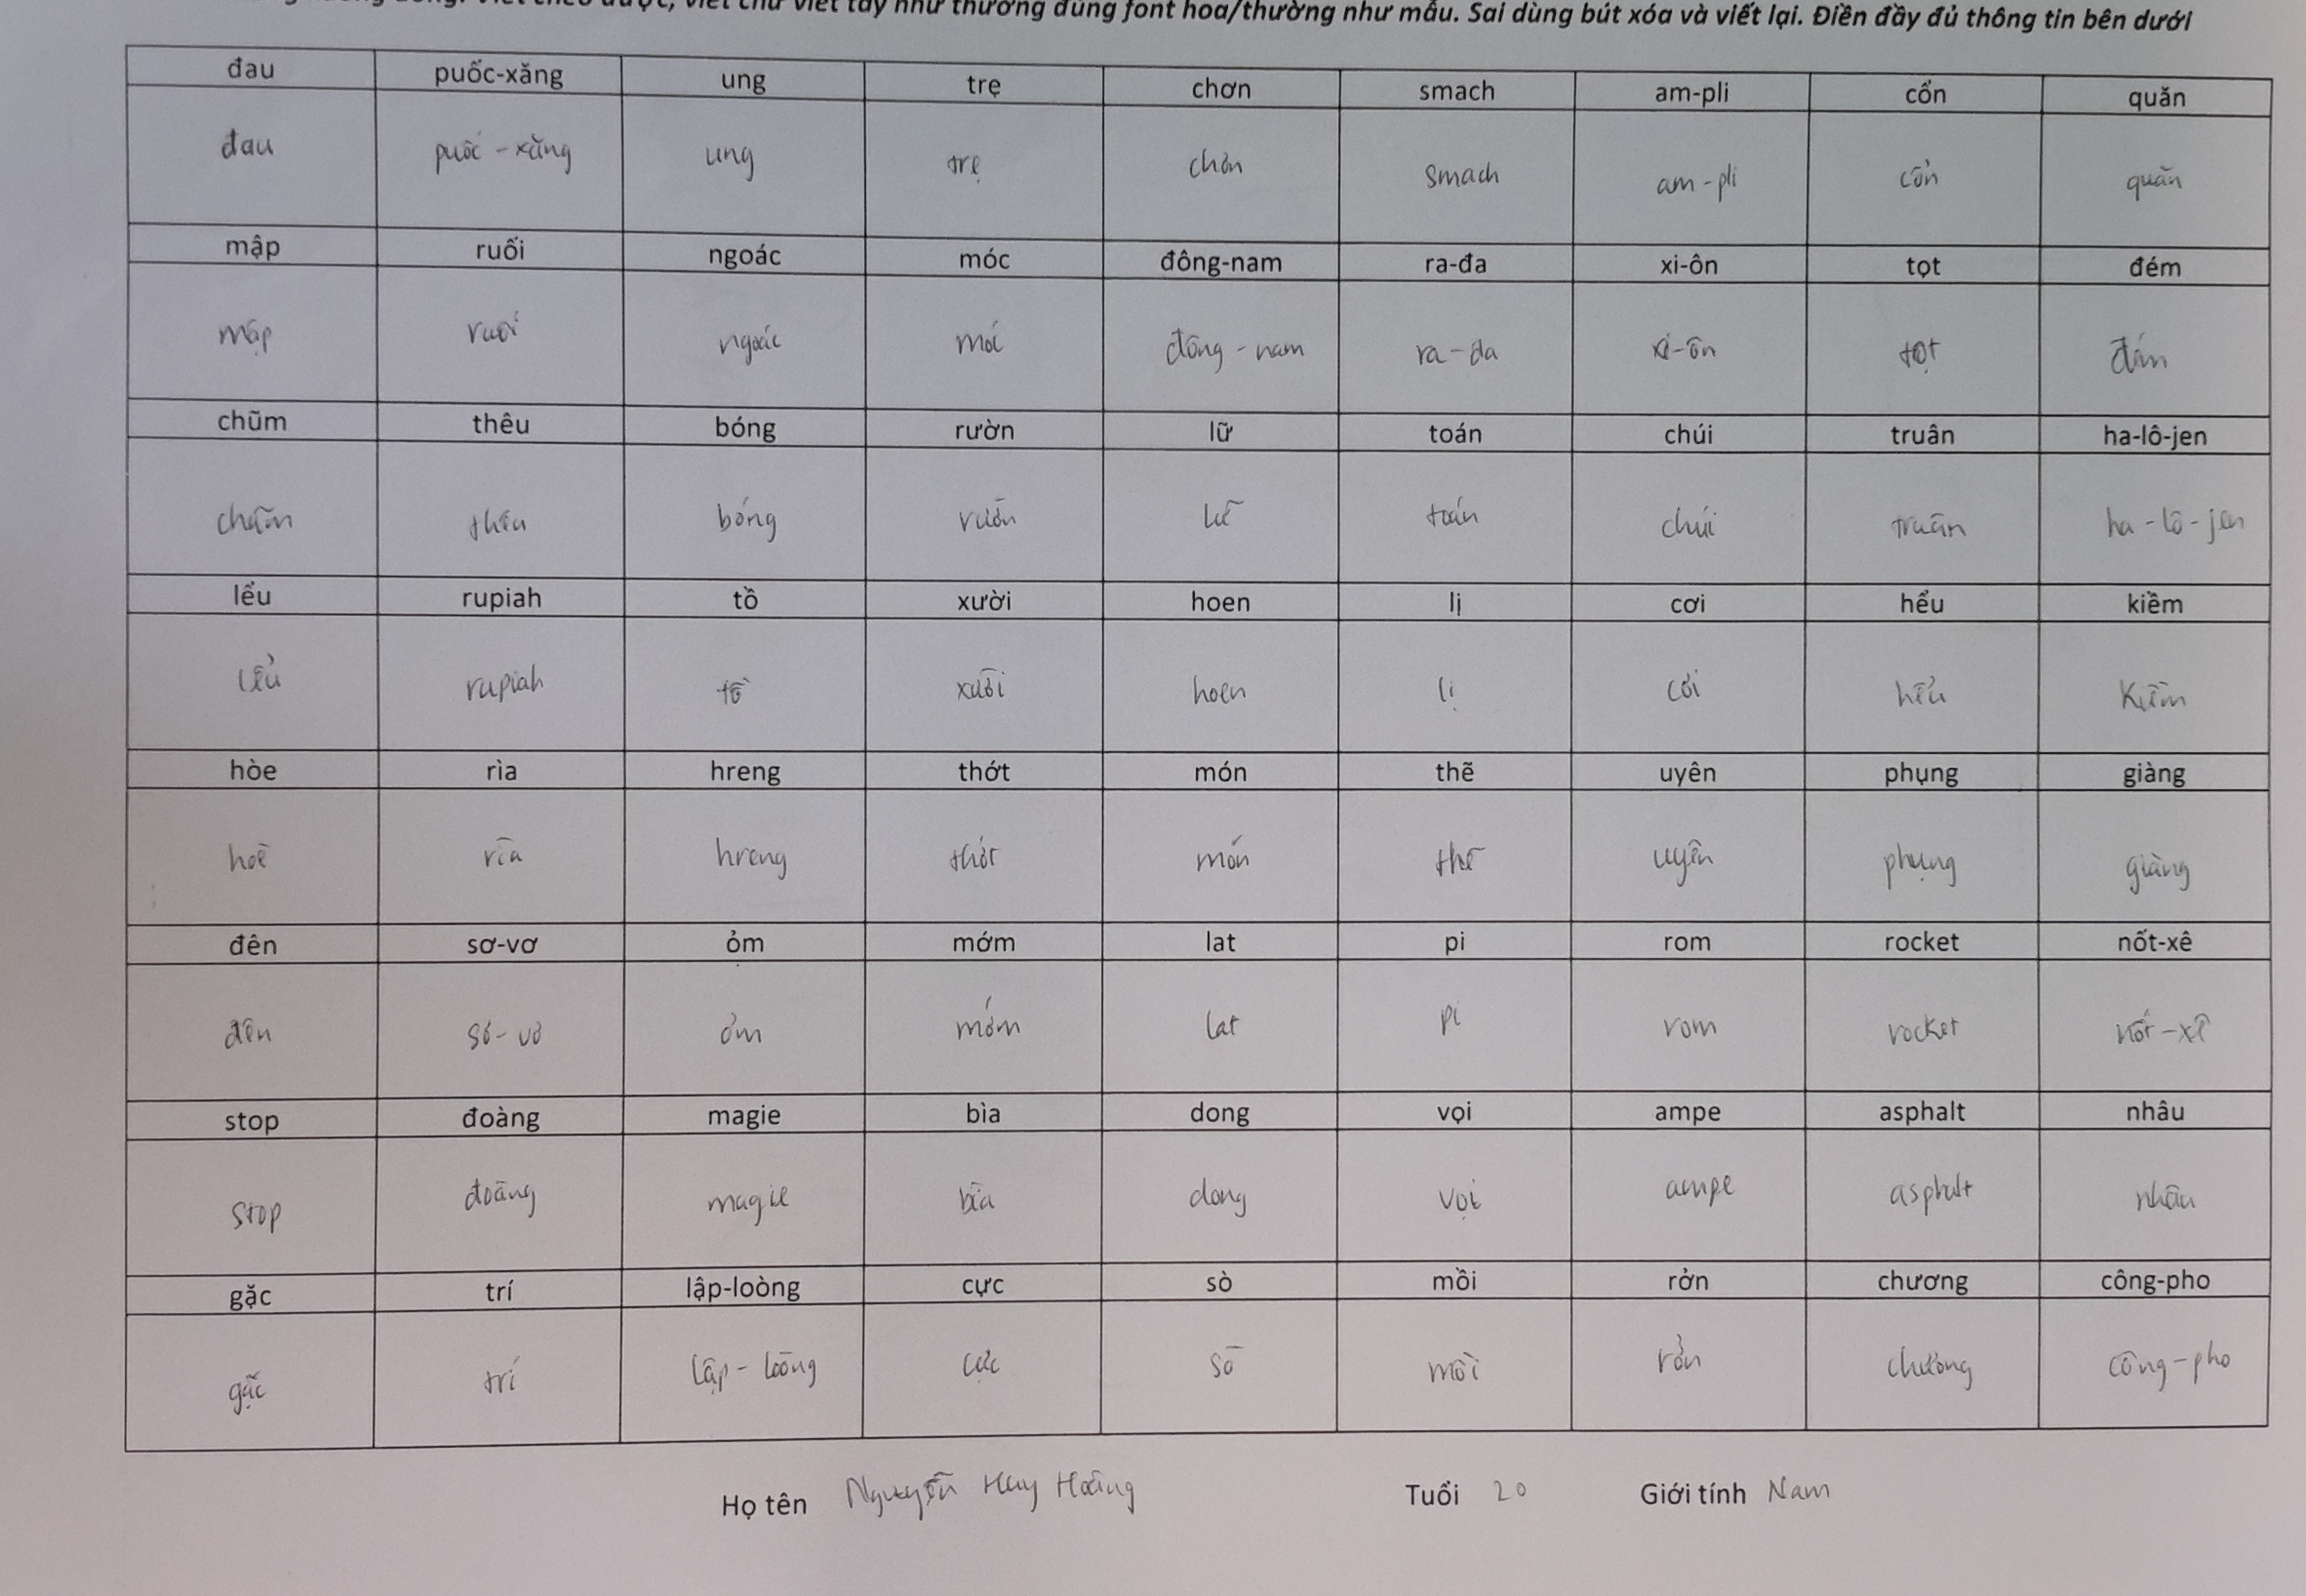 viết chữ viết tay như thường dùng font hoa/thường như mẫu. Sai dùng bút xóa và viết lại. Điền đầy đủ thông tin bên dưới
đau puốc-xăng ung trẹ chơn smach am-pli cổn quăn
đau puốc-xăng ung trẹ chơn smach am-pli cổn quăn
mập ruối ngoác móc đông-nam ra-đa xi-ôn tọt đém
mập ruối ngoác móc đông-nam ra-đa xi-ôn tọt đém
chũm thêu bóng rườn lữ toán chúi truân ha-lô-jen
chũm thêu bóng rườn lữ toán chúi truân ha-lô-jen
lểu rupiah tồ xười hoen lị cơi hểu kiềm
lểu rupiah tồ xười hoen lị cơi hểu kiềm
hòe rìa hreng thớt món thẽ uyên phụng giàng
hoè rìa hreng thớt món thẽ uyên phụng giàng
đên sơ-vơ ỏm mớm lat pi rom rocket nốt-xê
đên sơ-vơ ỏm mớm lat pi rom rocket nốt-xê
stop đoàng magie bìa dong vọi ampe asphalt nhâu
stop đoàng magie bìa dong vọi ampe asphalt nhâu
gặc trí lập-loòng cực sò mồi rởn chương công-pho
gặc trí lập-loòng cực sò mồi rởn chương công-pho
Họ tên Nguyễn Huy Hoàng Tuổi 20 Giới tính Nam